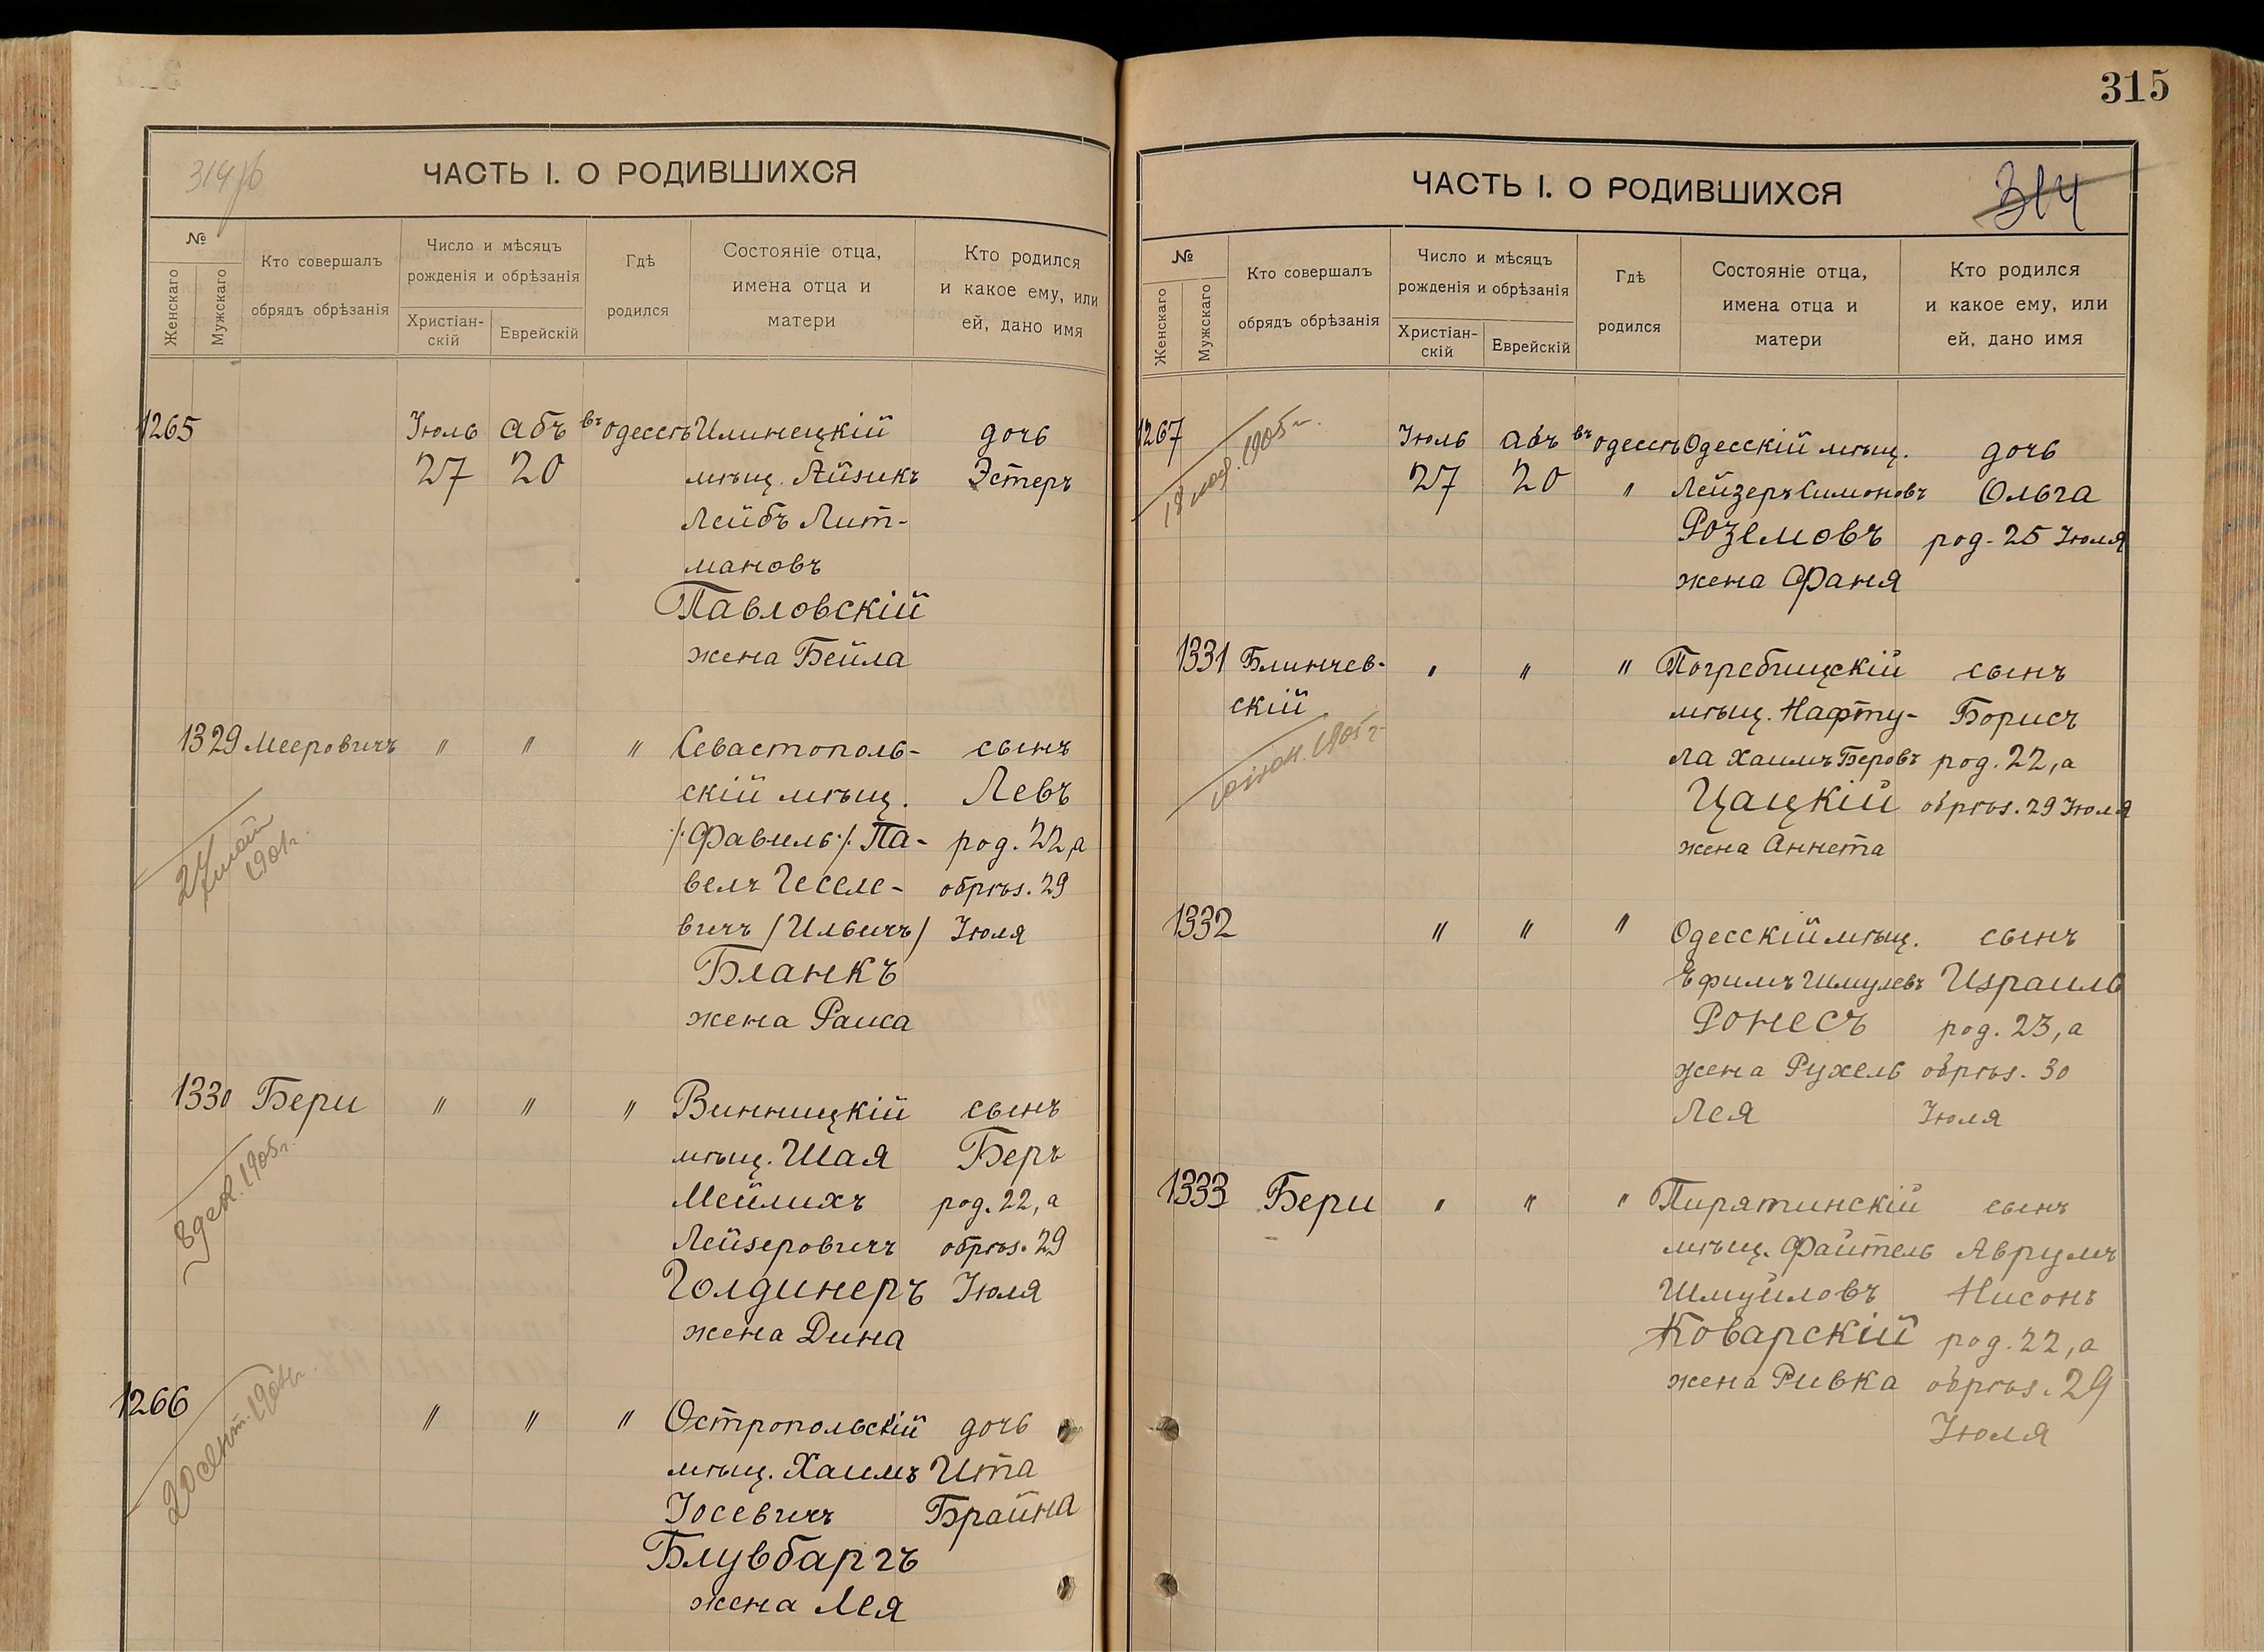 315
314 об
ЧАСТЬ I. О РОДИВШИХСЯ
№
Женскаго
Мужскаго
Кто совершалъ
обрядъ обрѣзанія
Число и мѣсяцъ
рожденія и обрѣзанія
Христіан-
скій
Еврейскій
Гдѣ
родился
Состояніе отца,
имена отца и
матери
Кто родился
и какое ему, или
ей, дано имя
1265 Іюль Абъ въ Одессѣ Илинецкій дочь
27 20 мѣщ. Айзикъ Эстеръ
Лейбъ Лит-
мановъ
Павловскій
жена Бейла
1329 Мееровичъ " " " Севастополь- сынъ
скій мѣщ. Левъ
/:Фавель:/ Па- род. 22, а
велъ Чеселе- обрѣз. 29
вичъ /Ильичъ/ Іюля
Бланкъ
жена Раиса
24 мая
1901 г.
1330 Бери " " " Винницкій сынъ
мѣщ. Шая Беръ
Мейлихъ род. 22, а
Лейзеровичъ обрѣз. 29
Голдинеръ Іюля
жена Дина
8 дек. 1905 г.
1266 " " " Остропольскій дочь
мѣщ. Хаимъ Ита
Іосевичъ Брайна
Блувбаргъ
жена Лея
20 сент. 1904 г.
ЧАСТЬ I. О РОДИВШИХСЯ
314
№
Женскаго
Мужскаго
Кто совершалъ
обрядъ обрѣзанія
Число и мѣсяцъ
рожденія и обрѣзанія
Христіан-
скій
Еврейскій
Гдѣ
родился
Состояніе отца,
имена отца и
матери
Кто родился
и какое ему, или
ей, дано имя
1267 Іюль Абъ въ Одессѣ Одесскій мѣщ. дочь
27 20 " Лейзеръ Симоновъ Ольга
Роземовъ род. 25 Іюля
жена Фаня
18 1905 г.
1331 Блинчев- " " " Погребищскій сынъ
скій мѣщ. Нафту- Борисъ
ла Хаимъ Беровъ род. 22, а
Цацкій обрѣз. 29 Іюля
жена Аннета
1905 г.
1332 " " " Одесскій мѣщ. сынъ
Ефимъ Шмулевъ Израиль
Ронесъ род. 23, а
жена Рухель обрѣз. 30
Лея Іюля
1333 Бери " " " Пирятинскій сынъ
мѣщ. Файтель Аврумъ
Шмуйловъ Нисонъ
Коварскій род. 22, а
жена Ривка обрѣз. 29
Іюля